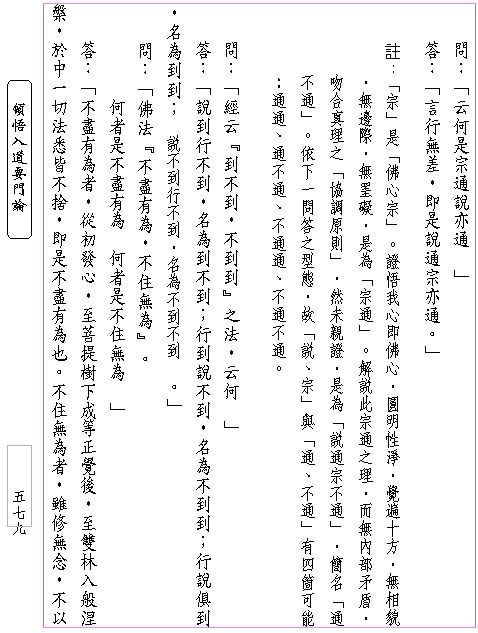 問：「云何是宗通說亦通 」
答：「言行無差，即是說通宗亦通。」
註：「宗」是「佛心宗」。證悟我心即佛心，圓明性淨，覺遍十方，無相貌
，無邊際，無罣礙，是為「宗通」。解說此宗通之理，而無內部矛盾，
吻合真理之「協調原則」，然未親證，是為「說通宗不通」，簡名「通
不通」。依下一問答之型態，故「說、宗」與「通、不通」有四箇可能
：通通、通不通、不通通、不通不通。
問：「經云『到不到，不到到』之法，云何 」
答：「說到行不到，名為到不到；行到說不到，名為不到到；行說俱到
，名為到到； 說不到行不到，名為不到不到 。」
問：「佛法『不盡有為，不住無為』。
何者是不盡有為 何者是不住無為 」
答：「不盡有為者，從初發心，至菩提樹下成等正覺後，至雙林入般涅
槃，於中一切法悉皆不捨，即是不盡有為也。不住無為者，雖修無念，不以
頓悟入道要門論
五七九